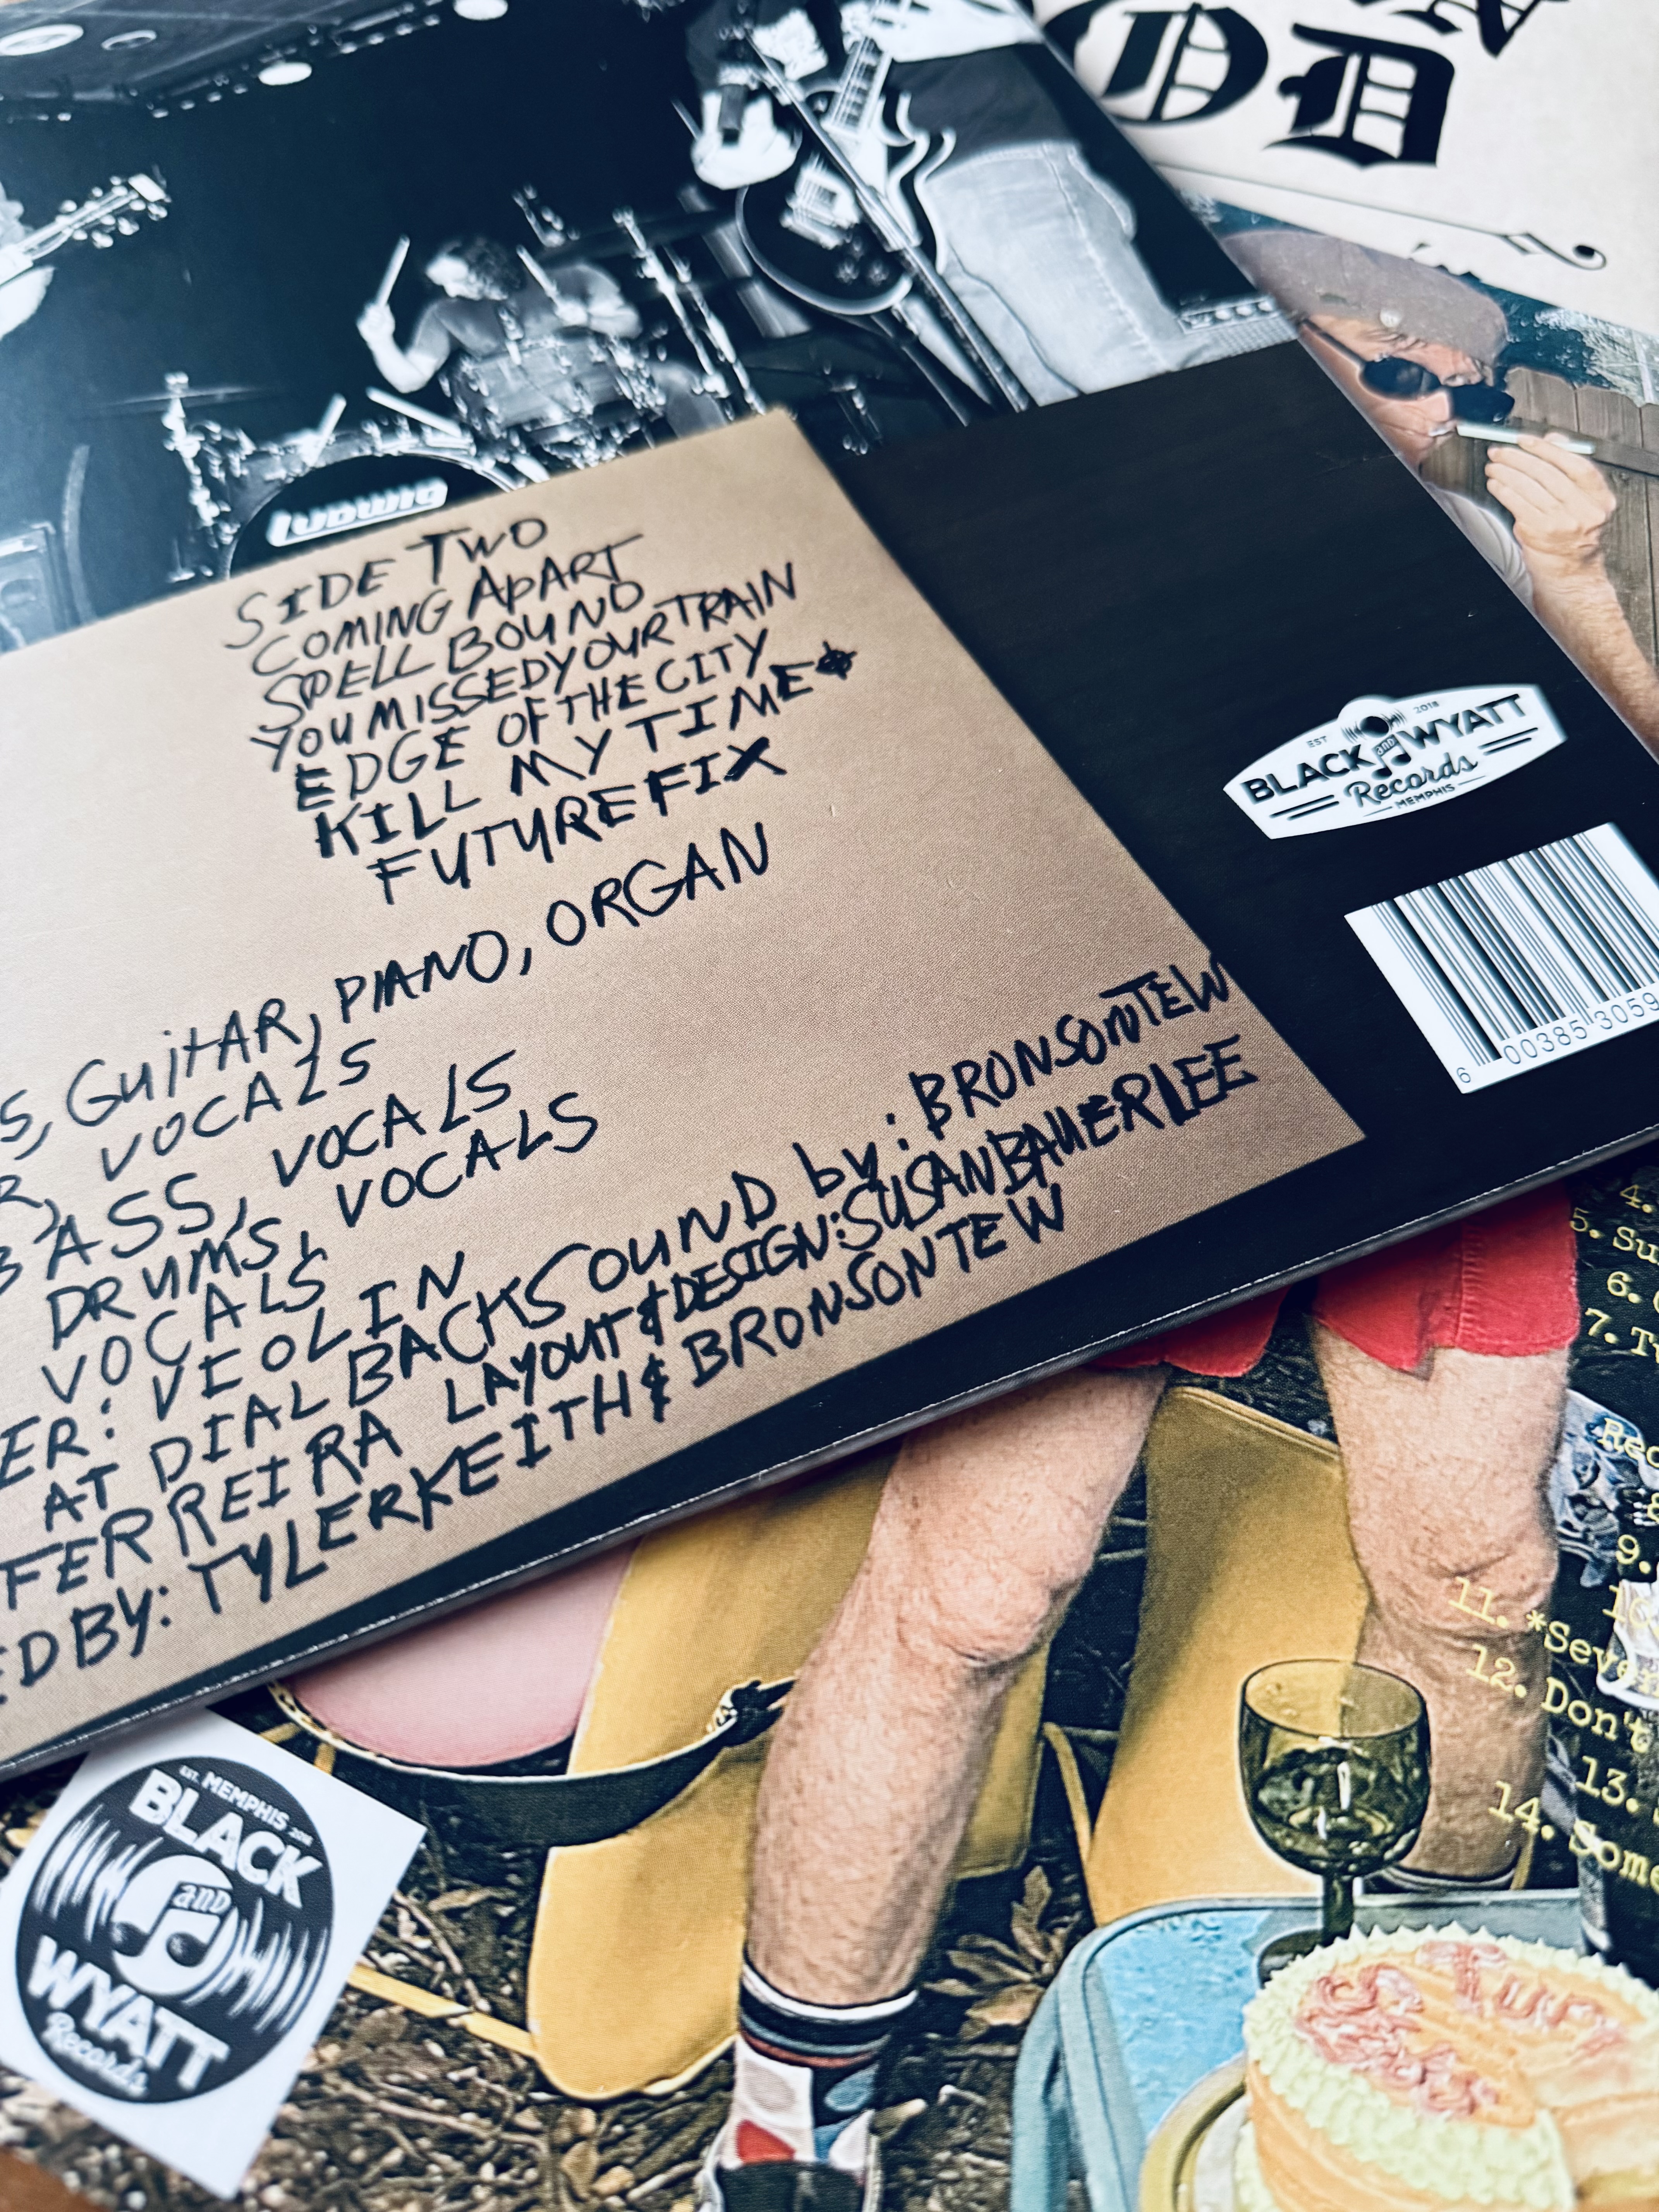 OD
LUDWIG
SIDE TWO
COMING APART
SPELL BOUND
YOU MISSED YOUR TRAIN
EDGE OF THE CITY
KILL MY TIME
FUTURE FIX
S, GUITAR, PIANO, ORGAN
R, VOCALS
BASS, VOCALS
DRUMS, VOCALS
VOCALS
ER: VEOLIN
AT DIAL BACK SOUND by: BRONSON TEW
FERREIRA LAYOUT & DESIGN: SUSAN BAUER LEE
ED BY: TYLER KEITH & BRONSON TEW
EST 2018
BLACK and WYATT
Records
MEMPHIS
6 00385 3059
4.
5. Su
6.
7. Tw
Rec
8
9.
10
11. *Seve
12. Don't
13.
14. Some
EST. MEMPHIS 2018
BLACK
and
WYATT
Records